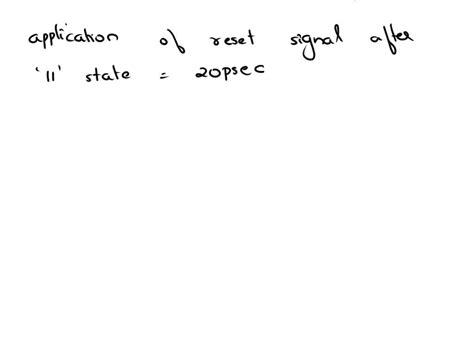 application of reset signal after
'11' state = 20psec